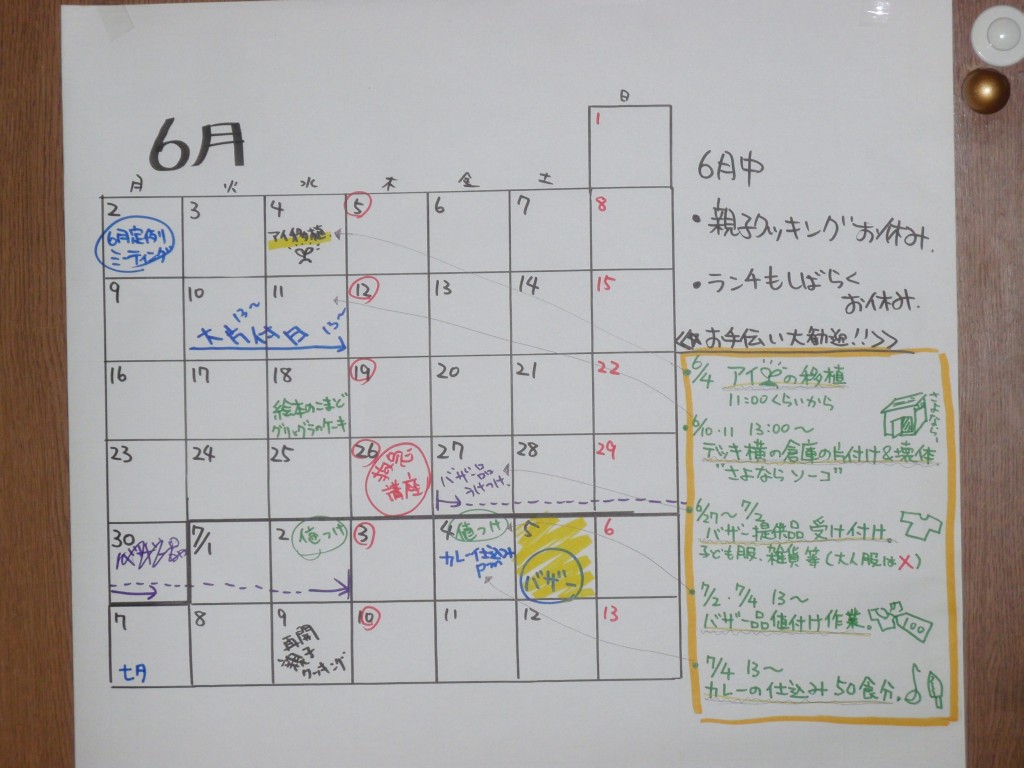 6月
日
1
月 火 水 木 金 土
2 3 4 5 6 7 8
6月定例
ミーティング
アイ移植
9 10 11 12 13 14 15
13〜 13〜
大片付日
16 17 18 19 20 21 22
絵本のこまど
グリとグラのケーキ
23 24 25 26 27 28 29
講座
バザー品
うけつけ
30 7/1 2 3 4 5 6
値つけ
値つけ
カレー仕込み
バザー
7 8 9 10 11 12 13
七夕
再開
親子
クッキング
6月中
・親子クッキングお休み.
・ランチもしばらく
お休み.
お手伝い大歓迎!!>>
6/4 アイの移植
11:00くらいから
6/10・11 13:00〜
さよなら
デッキ横の倉庫の片付け&壊体
"さよなら ソーコ"
6/27〜7/2
バザー提供品 受け付け.
子ども服、雑貨等(大人服は×)
7/2・7/4 13〜
バザー品値付け作業.
100
7/4 13〜
カレーの仕込み50食分.